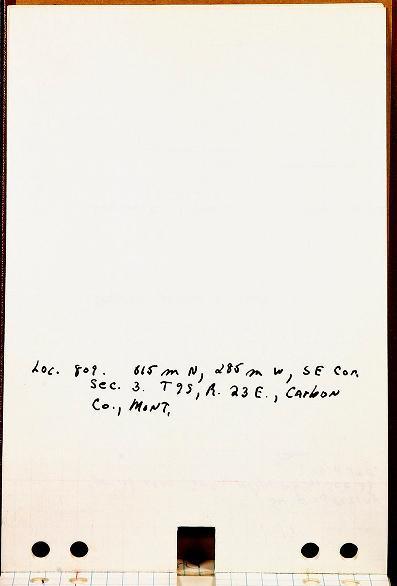 Loc. 809. 665 m N, 285 m W, SE Cor.
Sec. 3. T 9 S, R. 23 E., Carbon
Co., Mont.